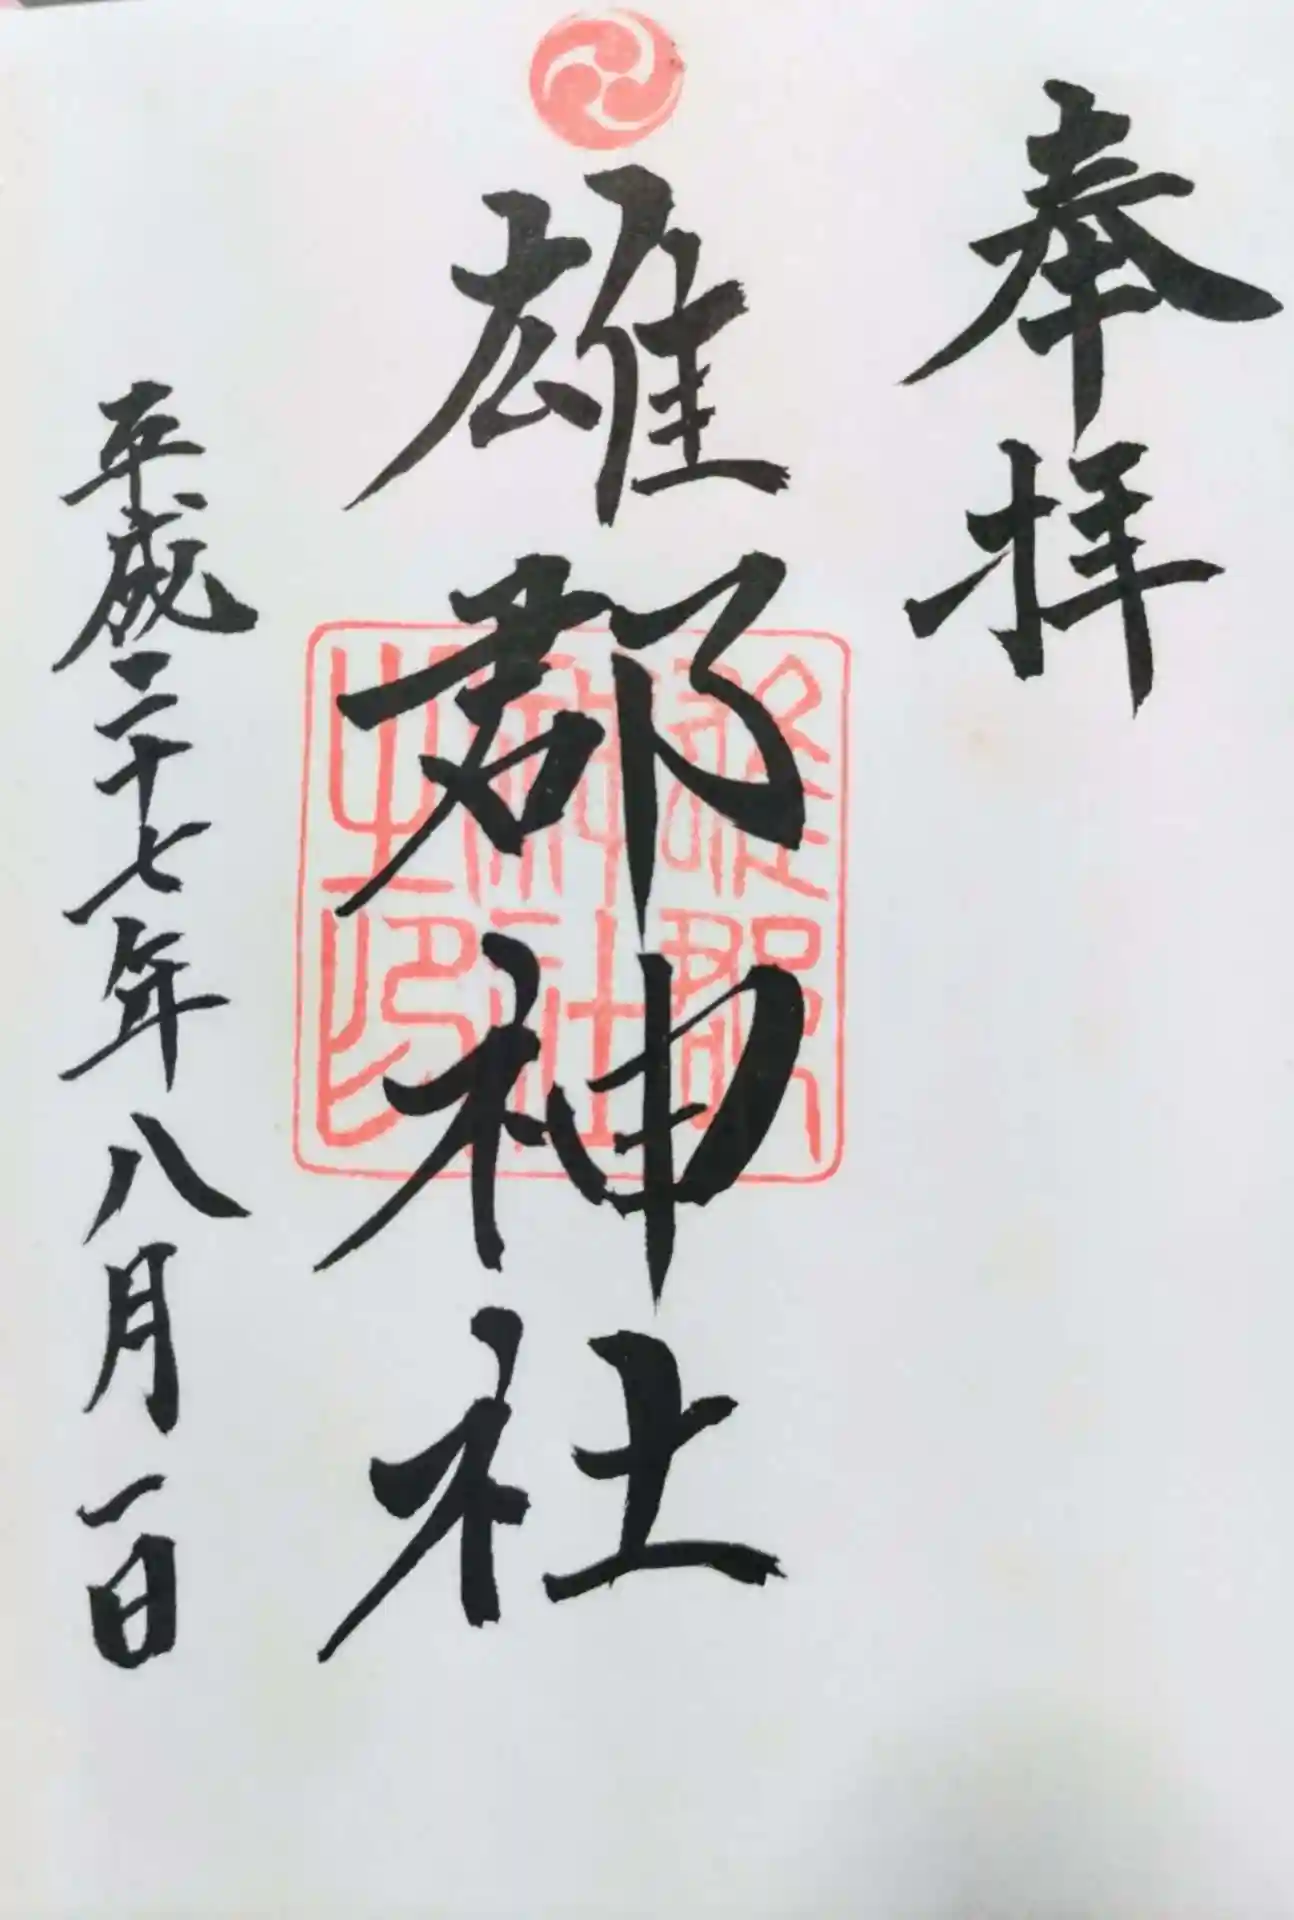 奉拝
雄郡神社
雄郡神社之印
平成二十七年八月一日